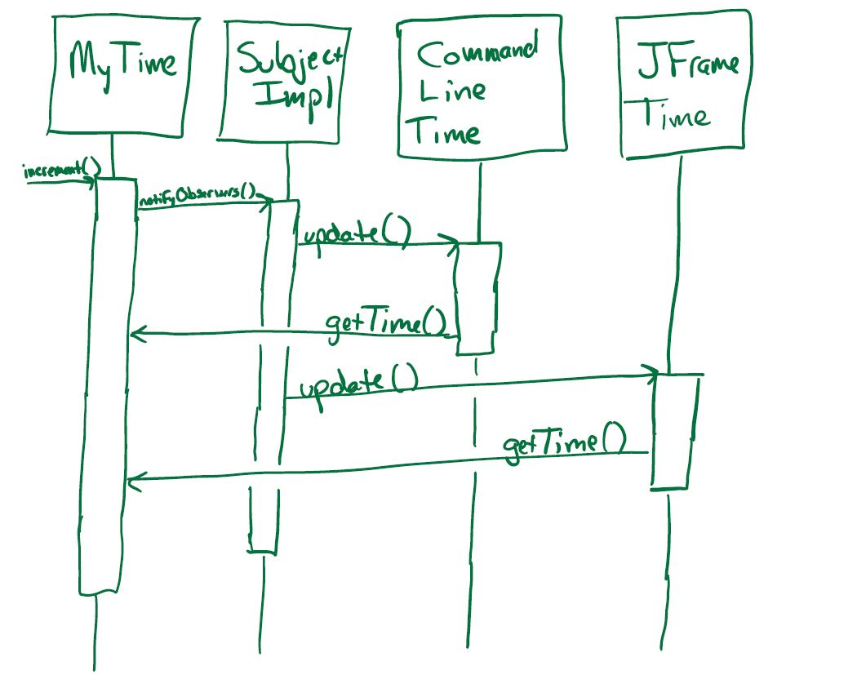 MyTime
Subject
Impl
Command
Line
Time
JFrame
Time
increment()
notifyObservers()
update()
getTime()
update()
getTime()